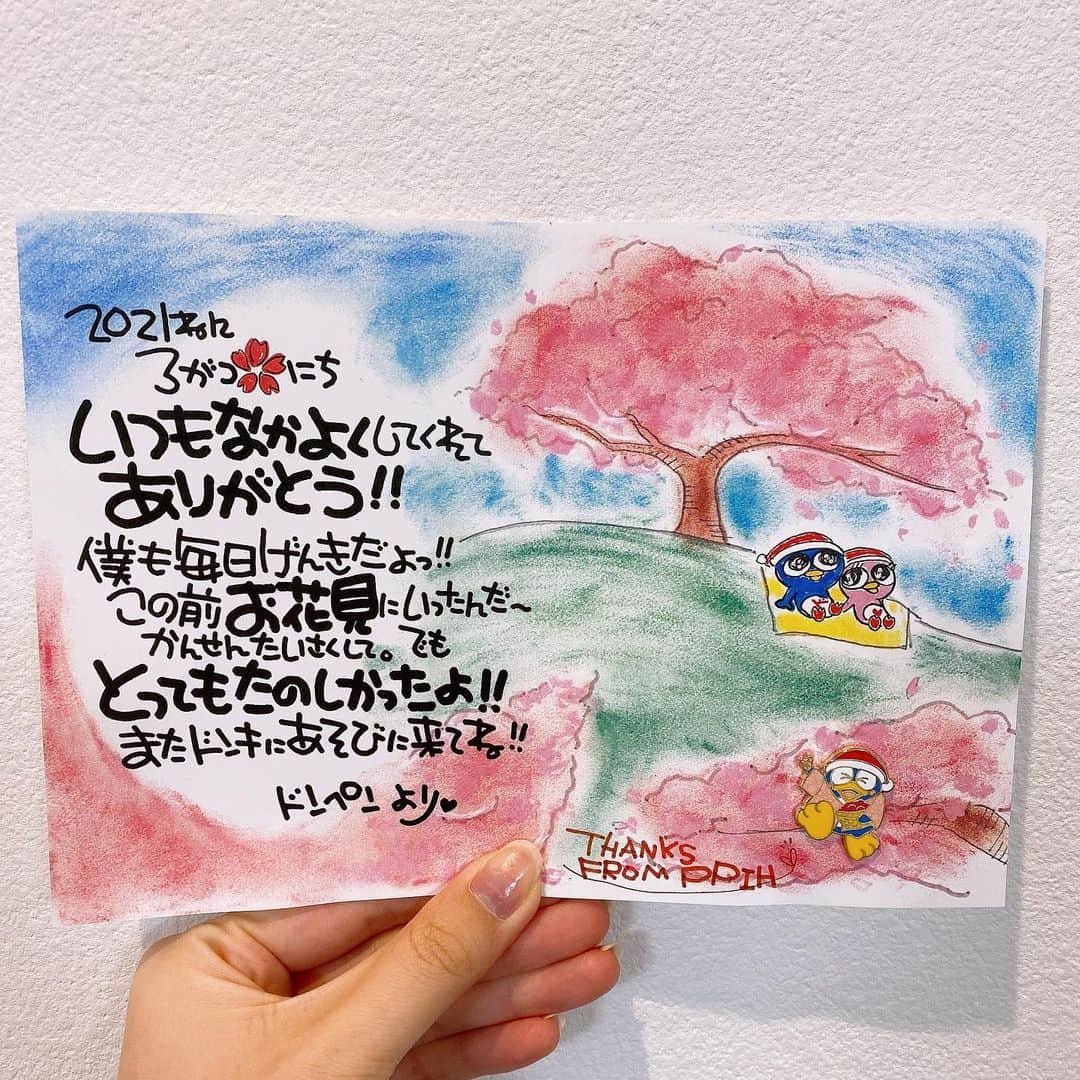 2021ねん
3がつ にち
いつもなかよくしてくれて
ありがとう!!
僕も毎日げんきだよっ!!
この前お花見にいったんだ〜
かんせんたいさくして。でも
とってもたのしかったよ!!
またドンキにあそびに来てね!!
ドンペンより♥
THANKS
FROM PPIH